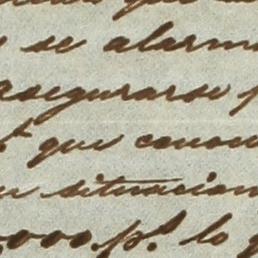 se alarm
asegurarse p
que conoc
situacion
,000 p.s lo q